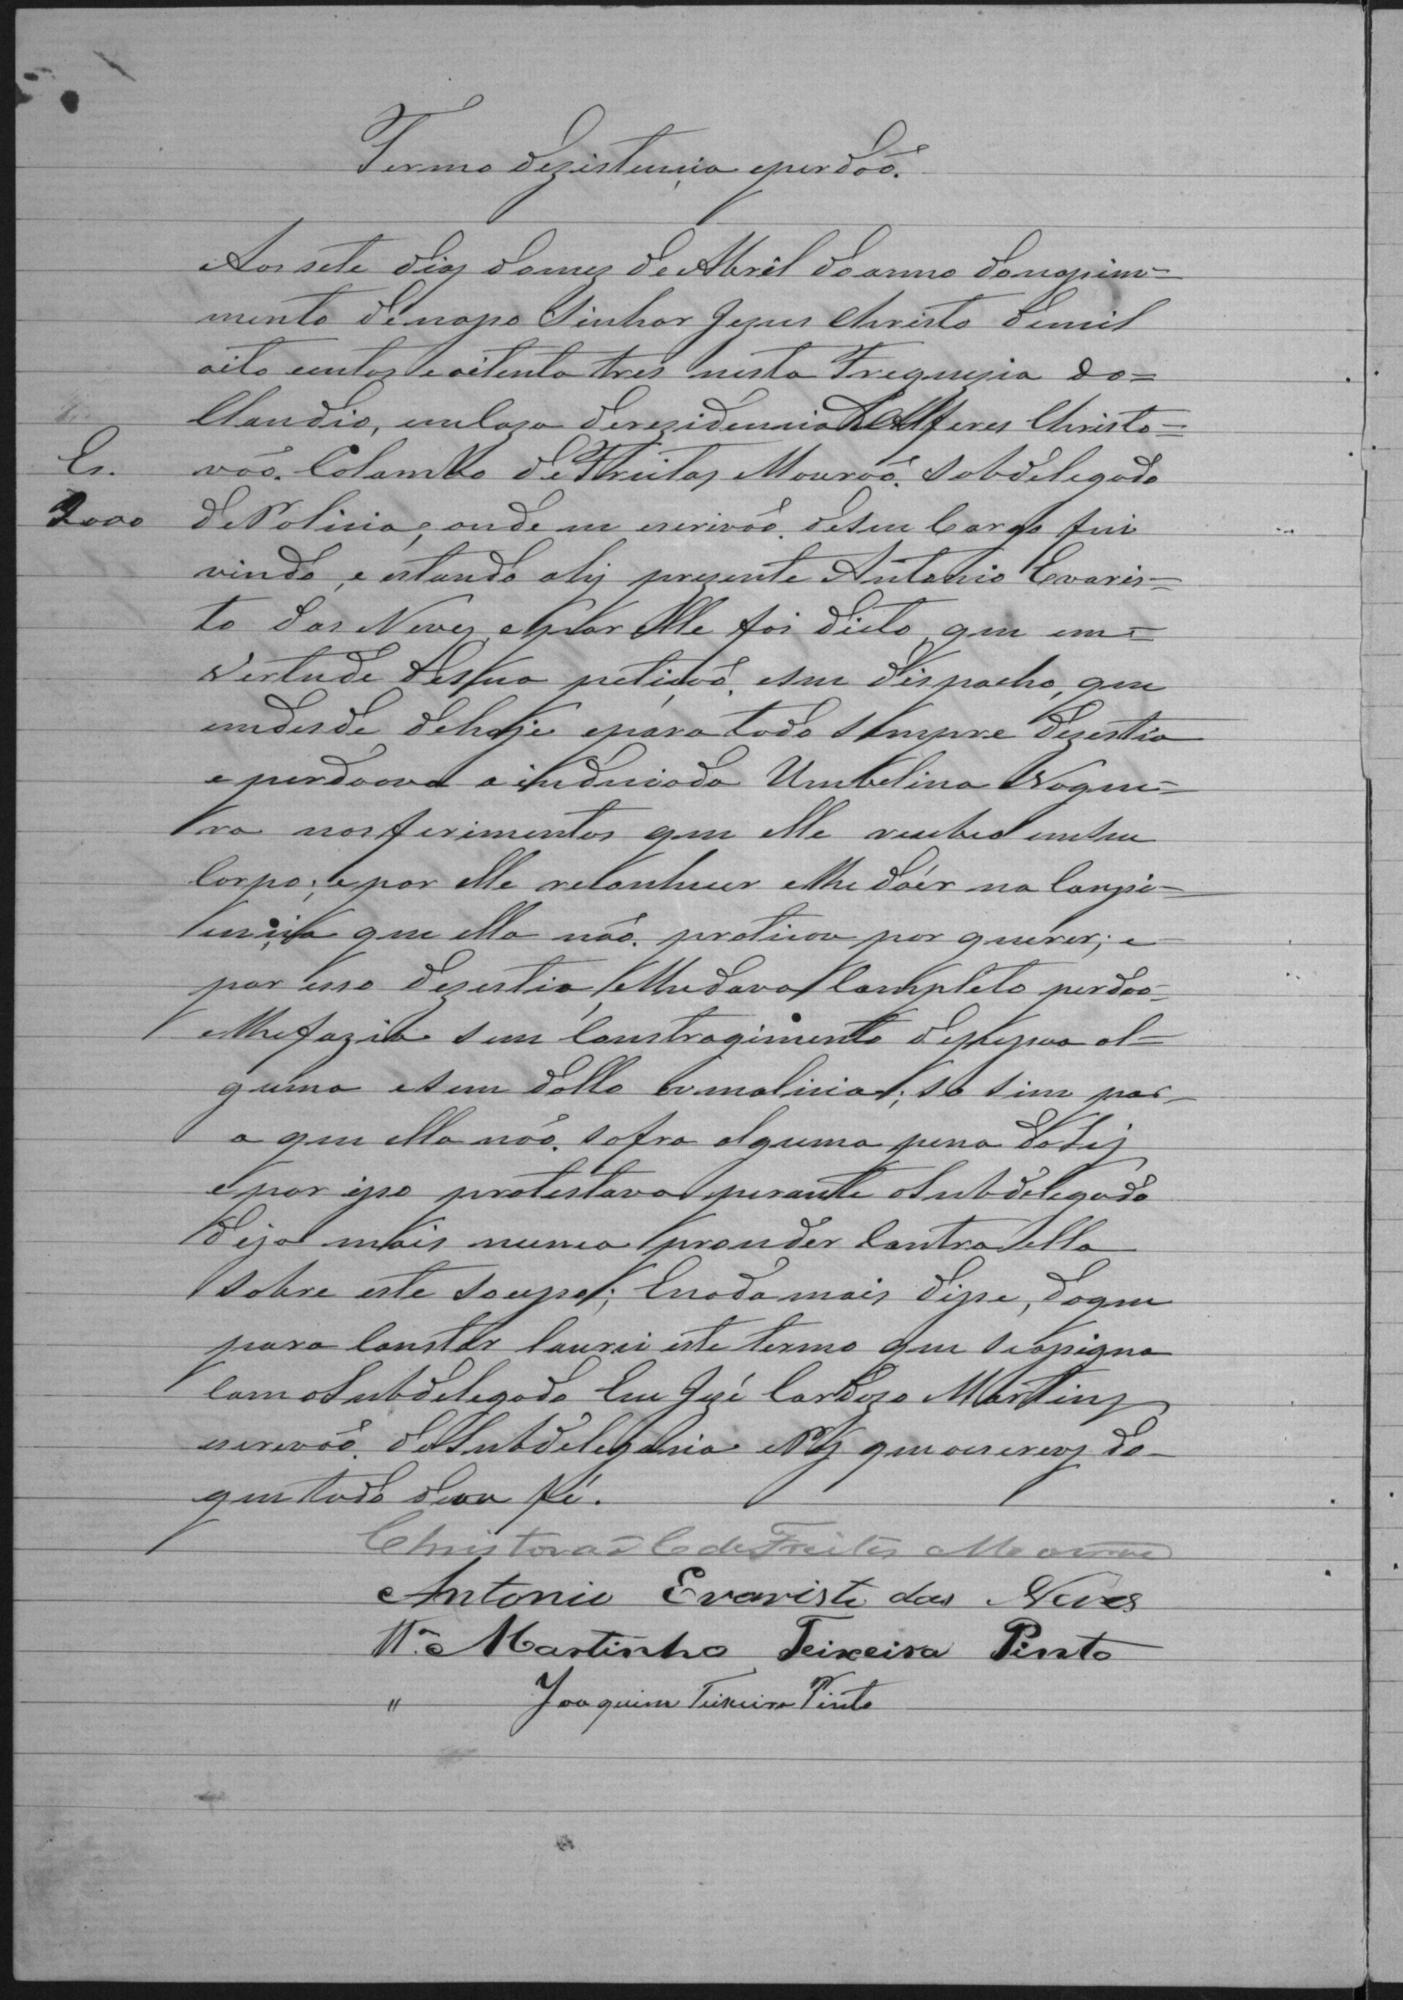 Termo dezistencia eperdão.
Aos sete dias domez de Abril doanno donassim=
mento denosso Sinhor Jezus Christo demil
oito centos e oitenta tres nesta Freguezia do=
Claudio, emcaza derezidencia do Alferes Christo=
vão. Colombo de Freitas Mourão. Subdelegado
Es.
2000
de Policia, onde eu escrivão. deseu Cargo fui
vindo, e estando ahj prezente Antonio Evaris=
to das Neves, epor elle foi dicto que em=
vertude desua petição. eseu dispacho, que
emdesde dehoje epara todo sempre dezestia
e perdoava a induciada Umbelina Nogue=
ra nos ferimentos que elle recebeo emseu
Corpo; e por elle reconhecer elhe doér na Conçi=
encia que ella não. praticou por querer; e
por isso dezestia, elhedava Completo perdão
elhefazia sem Constragimento depessoa al=
guma esem dollo ou malicia; so sim par-
a que ella não. sofra alguma pena da Lej
epor isso protestava perante oSubdelegado
deja mais nunca proseder Contra ella
sobre este socesso; Enada mais disse, doque
para Constar lavrei este termo que seassigna
Com oSubdelegado Eu José Cardozo Martins
escrevão. da Subdelegacia ePaz que oescrevj do
que tudo dou fé.
Christovaõ C de Freitas Mourão
Antonio Evaristo das Neves
Ta. Martinho Teixeira Pinto
" Joaquim Teixeira Pinto